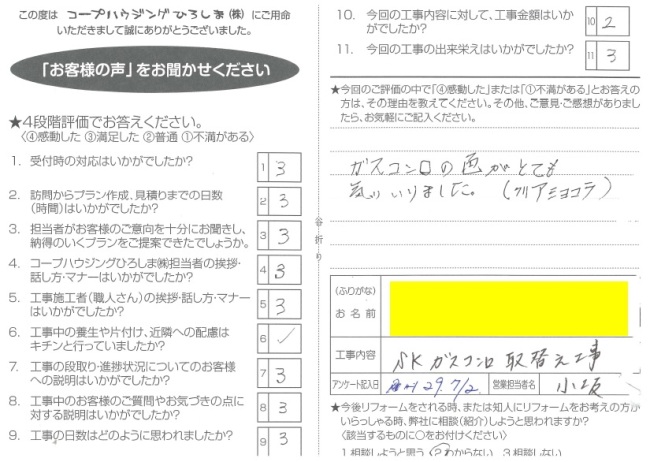 この度は コープハウジングひろしま(株) にご用命
いただきまして誠にありがとうございました。
「お客様の声」をお聞かせください
★4段階評価でお答えください。
〈④感動した ③満足した ②普通 ①不満がある〉
1. 受付時の対応はいかがでしたか? 1 3
2. 訪問からプラン作成、見積りまでの日数
(時間)はいかがでしたか? 2 3
3. 担当者がお客様のご意向を十分にお聞きし、
納得のいくプランをご提案できたでしょうか。 3 3
4. コープハウジングひろしま㈱担当者の挨拶・
話し方・マナーはいかがでしたか? 4 3
5. 工事施工者(職人さん)の挨拶・話し方・マナー
はいかがでしたか? 5 3
6. 工事中の養生や片付け、近隣への配慮は
キチンと行っていましたか? 6 ✓
7. 工事の段取り・進捗状況についてのお客様
への説明はいかがでしたか? 7 3
8. 工事中のお客様のご質問やお気づきの点に
対する説明はいかがでしたか? 8 3
9. 工事の日数はどのように思われましたか? 9 3
谷折り
10. 今回の工事内容に対して、工事金額はいか
がでしたか? 10 2
11. 今回の工事の出来栄えはいかがでしたか? 11 3
★今回のご評価の中で「④感動した」または「①不満がある」とお答えの
方は、その理由を教えてください。その他、ご意見・ご感想がありまし
たら、お気軽にご記入ください。
ガスコンロの色がとても
気にいりました。(クリアショコラ)
(ふりがな)
お名前
工事内容 SKガスコンロ取替え工事
アンケート記入日 29 7/2 営業担当者名 小坂
★今後リフォームをされる時、または知人にリフォームをお考えの方が
いらっしゃる時、弊社に相談(紹介)しようと思われますか?
〈該当するものに○をお付けください〉
1 相談しようと思う 2 わからない 3 相談しない